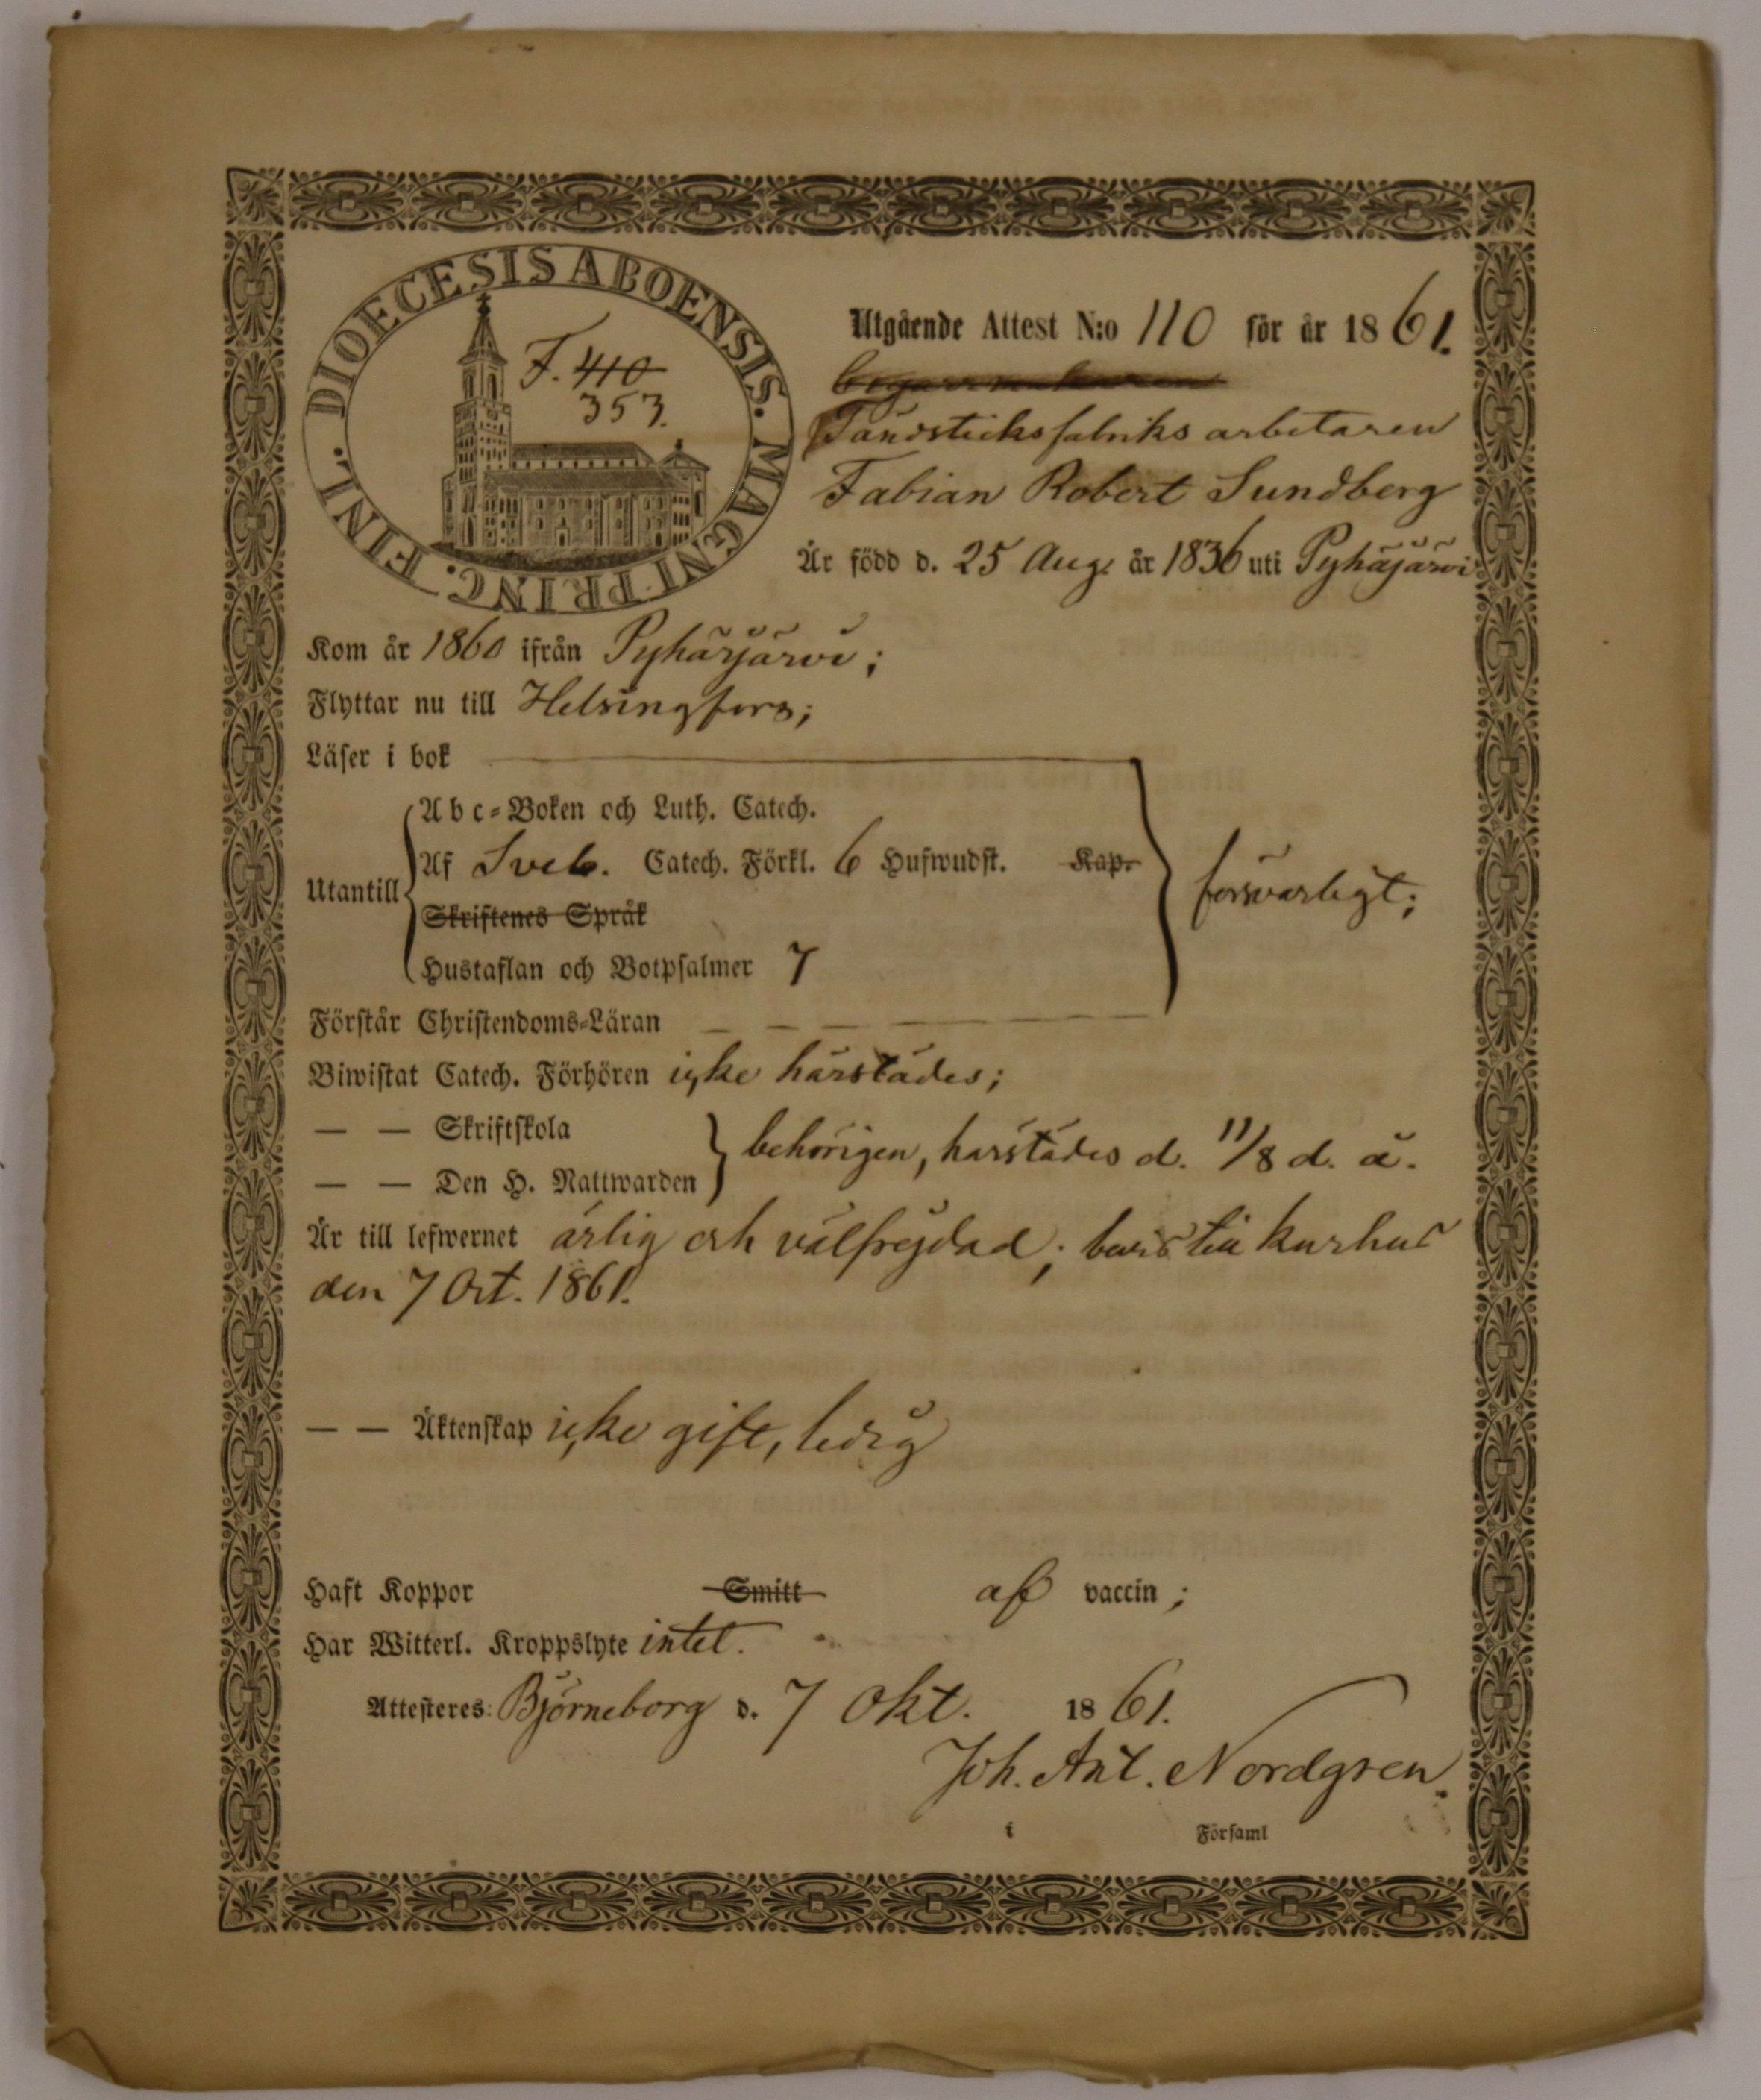 DIOECESIS ABOENSIS. MAGNI PRINC. FINL.
F. 410
353.
Utgående Attest N:o 110 för år 1861.
Tändsticksfabriks arbetaren
Fabian Robert Sundberg
Är född d. 25 Aug. år 1836 uti Pyhäjärvi
Kom år 1860 ifrån Pyhäjärvi;
Flyttar nu till Helsingfors;
Läser i bok
Abc-Boken och Luth. Catech.
Utantill Af Sveb. Catech. Förkl. 6 Hufwudst. Kap. försvarligt;
Skriftenes Språk
Hustaflan och Botpsalmer 7
Förstår Christendoms-Läran
Biwistat Catech. Förhören icke härstädes;
— — Skriftskola
— — Den H. Nattwarden behörigen, härstädes d. 11/8 d. å.
Är till lefwernet ärlig och välfrejdad; kurhus
den 7 Oct. 1861.
— — Äktenskap icke gift, ledig
Haft Koppor Smitt af vaccin;
Har Witterl. Kroppslyte intet.
Attesteres: Björneborg d. 7 Okt. 1861.
Joh. Ant. Nordgren.
i Församl